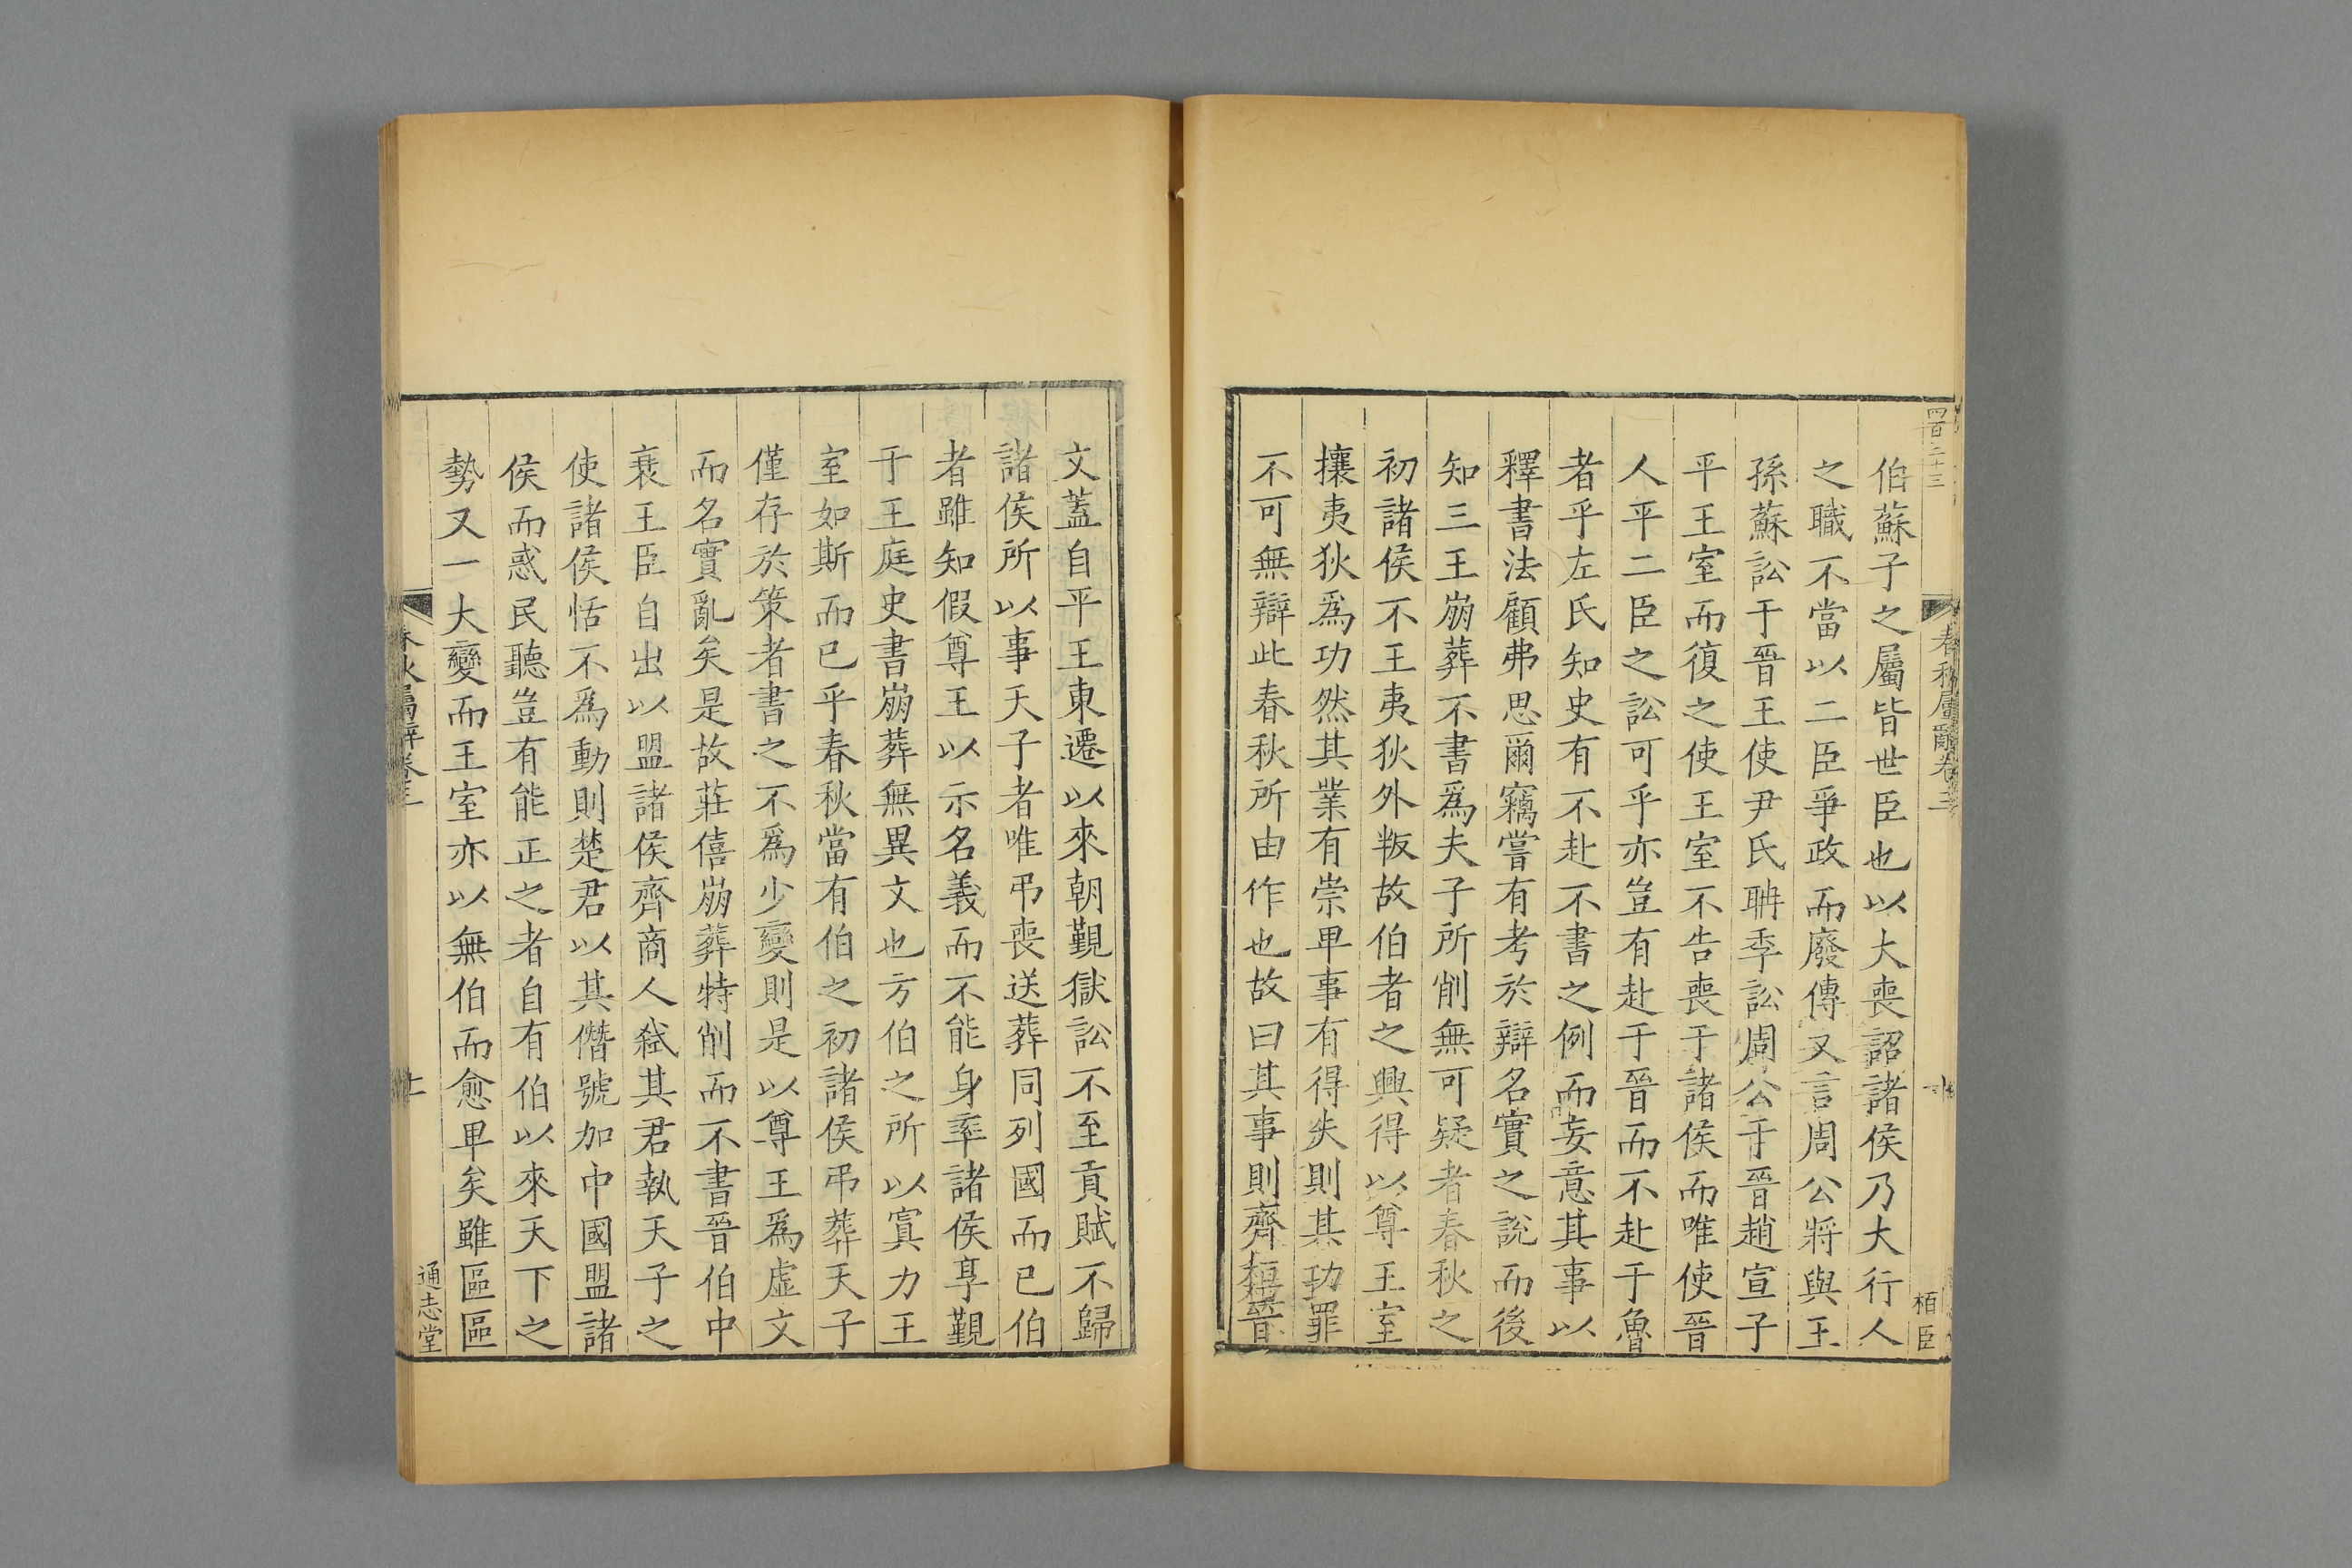 四百二十三
春秋屬辭卷三
十
栢臣
伯蘇子之屬皆世臣也以大喪詔諸侯乃大行人
之職不當以二臣爭政而廢傳又言周公將與王
孫蘇訟于晉王使尹氏聃季訟周公于晉趙宣子
平王室而復之使王室不告喪于諸侯而唯使晉
人平二臣之訟可乎亦豈有赴于晉而不赴于魯
者乎左氏知史有不赴不書之例而妄意其事以
釋書法顧弗思爾竊嘗有考於辯名實之說而後
知三王崩葬不書爲夫子所削無可疑者春秋之
初諸侯不王夷狄外叛故伯者之興得以尊王室
攘夷狄爲功然其業有崇卑事有得失則其功罪
不可無辯此春秋所由作也故曰其事則齊桓晉
文蓋自平王東遷以來朝覲獄訟不至貢賦不歸
諸侯所以事天子者唯弔喪送葬同列國而已伯
者雖知假尊王以示名義而不能身率諸侯享覲
于王庭史書崩葬無異文也方伯之所以寘力王
室如斯而已乎春秋當有伯之初諸侯弔葬天子
僅存於策者書之不爲少變則是以尊王爲虛文
而名實亂矣是故莊僖崩葬特削而不書晉伯中
衰王臣自出以盟諸侯齊商人弒其君執天子之
使諸侯恬不爲動則楚君以其僭號加中國盟諸
侯而惑民聽豈有能正之者自有伯以來天下之
勢又一大變而王室亦以無伯而愈卑矣雖區區
春秋屬辭卷三
通志堂